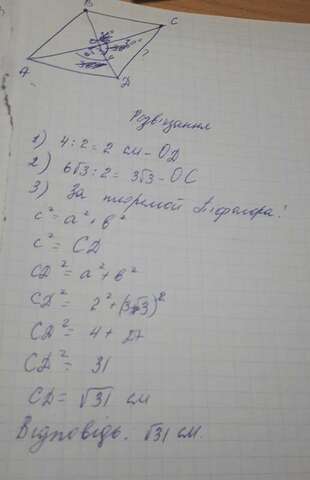 B
C
A
D
?
Розв'язання
1) 4:2=2 см-OD
2) 6√3:2= 3√3-OC
3) За теоремой Піфагора:
c²=a²+в²
c²=CD
CD²=a²+в²
CD²= 2²+(3√3)²
CD²= 4+27
CD²= 31
CD=√31 см
Відповідь. √31 см.